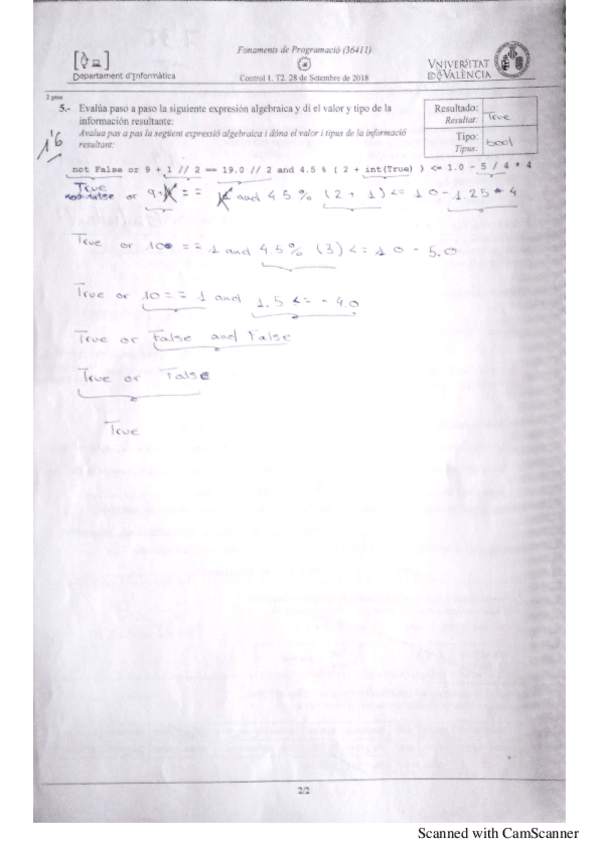 Fonaments de Programació (36411)
Departament d'Informàtica
Control 1. T2. 28 de Setembre de 2018
VNIVERSITAT
ID VALÈNCIA
2 ptos
5.- Evalúa paso a paso la siguiente expresión algebraica y di el valor y tipo de la
información resultante:
Avalua pas a pas la següent expressió algebraica i dóna el valor i tipus de la informació
resultant:
Resultado:
Resultat:
True
Tipo:
Tipus:
bool
1'6
not False or 9 + 1 // 2 == 19.0 // 2 and 4.5 % ( 2 + int(True) ) <= 1.0 - 5 / 4 * 4
True
or 9+ == and 4.5 % (2 + 1) <= 1.0 - 1.25 * 4
True or 10 == 1 and 4.5 % (3) <= 1.0 - 5.0
True or 10 == 1 and 1.5 <= -4.0
True or False and False
True or False
True
2/2
Scanned with CamScanner